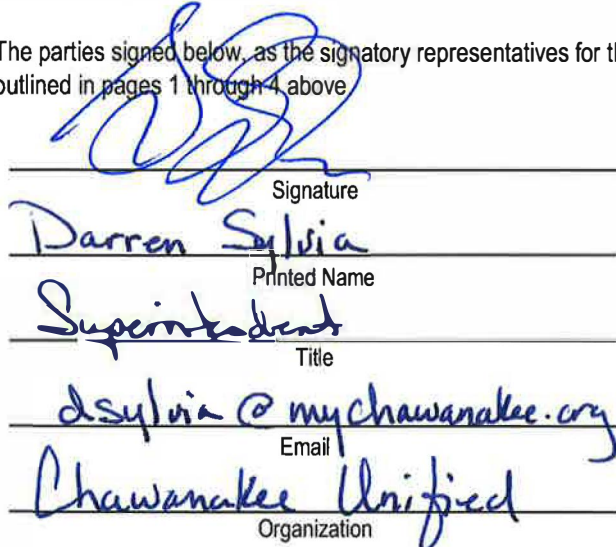 The parties signed below, as the signatory representatives for th
outlined in pages 1 through 4 above
Signature
Darren Sylvia
Printed Name
Superintendent
Title
dsylvia @ mychawanakee.org
Email
Chawanakee Unified
Organization